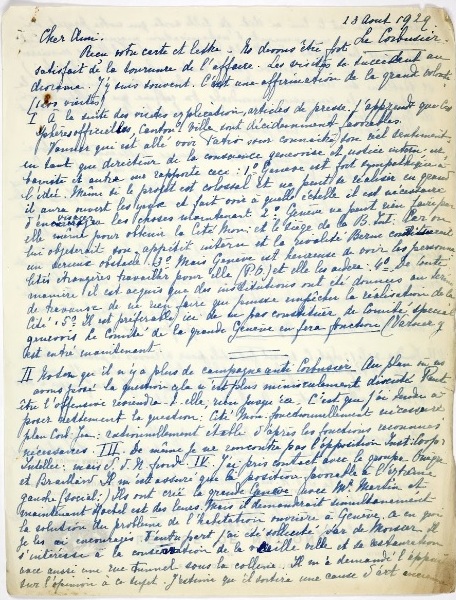 13 Aout 1929
Le Corbusier
Cher Ami.
Recu votre carte et lettre. Ne devons être fort
satisfait de la tournure de l'affaire. Les visites se succèdent au
diorama. J'y suis souvent. C'est une affirmation de la grande volonté
(100 visites)
I A la suite des visites explication, articles de presse. J'apprends que les
sphères officielles, canton ville sont décidemment favorables.
Vanner qui est allé voir (vous connaître) son
en tant que directeur de la
et autre me rapporte ceci : 1° Genève est fort sympathique à
l'idée. Même si le projet est colossal et ne peut se réaliser en grand
il aura ouvert les yeux et fait voir à quelle échelle il est nécessaire
d'envisager les choses maintenant. 2° Genève ne peut rien faire par
elle même pour obtenir la Cité Mon. et le siège de la B. Int. Berne
lui objecterait son appetit interne et la rivalité Berne
un serieux obstacle. 3° Mais Genève est heureuse de voir les personna
lités étrangères travailler pour elle (P.O.) et elle les aidera. 4° De toute
manière il est acquis que des instructions ont été données au serv.
de travaux de ne rien faire qui puisse empêcher la réalisation de la
Cité. 5° Il est préférable ici de ne pas constituer de comité special
genevois le Comité de la grande Genève en fera fonction (Vanner y
est entré maintenant.
II Notons qu'il n'y a plus de campagne anti Corbusier. Au plan où n.
avons posé la question cela n'est plus discuté. Peut
être l'offensive reviendra-t-elle, rien jusque ici. C'est que j'ai tendu à
poser nettement la question : Cité Mon. fonctionnellement nécessaire
plan Corb. Jean. : rationnellement établi d'après les fonctions reconnues
necessaires. III De même je ne rencontre pas l'opposition Inst. Coop.
Intellec. mais S.d.N. fond. IV. J'ai pris contact avec le groupe
et Braillard. Il m'est assuré que la position favorable à l'extrême
gauche (social.) Ils ont crié la grande Genève avec Mr Martin et
maintenant est des leurs. Mais il demanderait simultanément
la solution du problème de l'habitation ouvrière à Genève, a en qui
je les ai encouragés. D'autre part j'ai été sollicité par de Monser. Il
s'interesse à la conservation de la vieille ville et sa restauration
avec aussi une rue tunnel sous la colline. Il m'a demandé l'appui
sur l'opinion à ce sujet. J'estime que il sortira une cause d'art ancienne